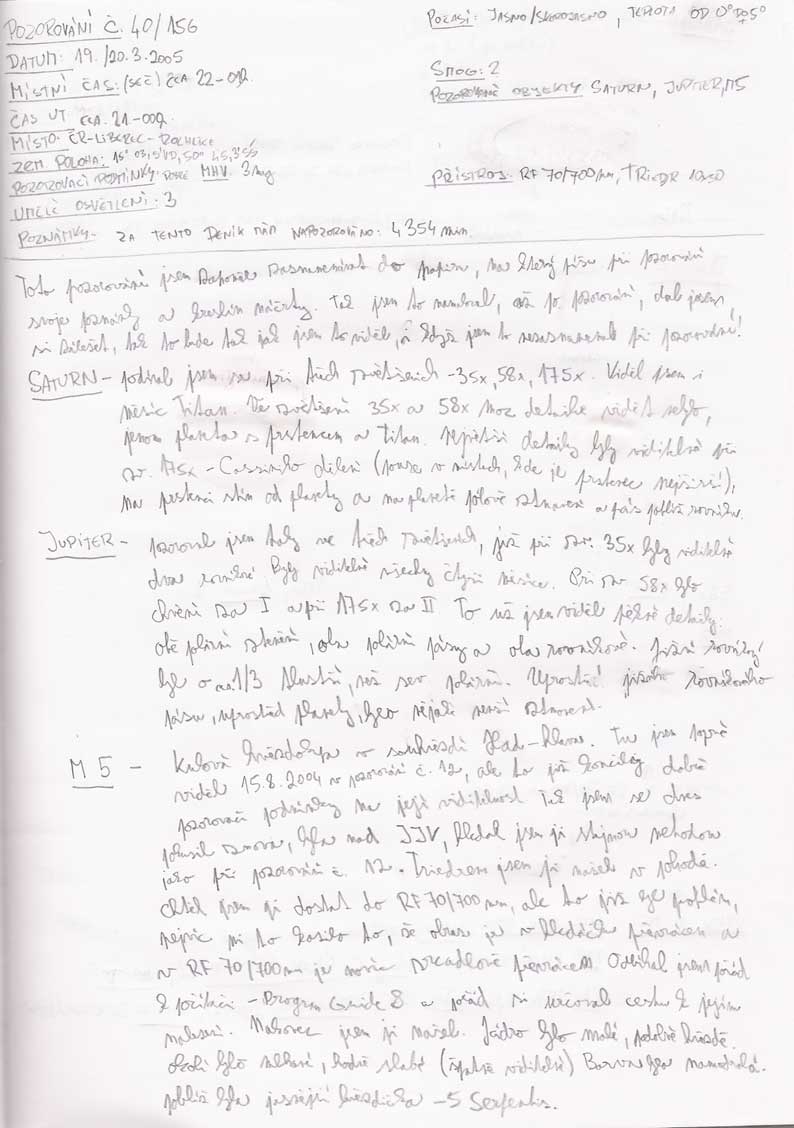 POZOROVÁNÍ Č. 40/156
DATUM: 19./20.3.2005
MÍSTNÍ ČAS: (SEČ) CCA 22-01h.
ČAS UT CCA. 21-00h.
MÍSTO: ČR-LIBEREC-ROCHLICE
ZEM. POLOHA: 15° 03,5' VD, 50° 45,3' SŠ
POZOROVACÍ PODMÍNKY: DOBRÉ MHV: 3 mag
UMĚLÉ OSVĚTLENÍ: 3
POČASÍ: JASNO/SKOROJASNO, TEPLOTA OD 0° DO 5°
SMOG: 2
POZOROVANÉ OBJEKTY SATURN, JUPITER, M5
PŘÍSTROJ: RF 70/700mm, TRIEDR 10x50
POZNÁMKY: ZA TENTO DENÍK MÁM NAPOZOROVÁNO: 4354 min.
Toto pozorování jsem zapomněl zaznamenávat do papíru, na který píšu při pozorování
svoje poznámky a kreslím náčrtky. Též jsem to namaloval, až po pozorování, dal jsem
si záležet, tak to bude tak jak jsem to viděl, i když jsem to nezaznamenal při pozorování!
SATURN - podíval jsem se při třech zvětšeních - 35x, 58x, 175x. Viděl jsem i
měsíc Titan. Ve zvětšení 35x a 58x moc detailů vidět nebylo,
jenom planeta s prstencem a Titan. Největší detaily byly viditelné při
zv. 175x - Cassiniho dělení (pouze v místech, kde je prstenec nejširší),
na prstenci stín od planety a na planetě pólové ztmavení a pás poblíž rovníku.
JUPITER - pozoroval jsem taky ve třech zvětšeních, již při zv. 35x byly viditelné
dva rovníkové Byly viditelné všechny čtyři měsíce. Při zv 58x bylo
chvění za I a při 175x za II To už jsem viděl pěkné detaily:
obě polární ztemnění, oba polární pásy a oba rovníkové. Jižní rovníkový
byl o cca 1/3 tlustší, než sev. polární. Uprostřed jižního rovníkového
pásu, uprostřed planety, bylo nějaké menší ztmavení.
M 5 - Kulová hvězdokupa v souhvězdí Had-hlava. Tu jsem poprvé
viděl 15.8.2004 v pozorování č. 12, ale to již končily dobré
pozorovací podmínky na její viditelnost Též jsem se dnes
pokusil znova, byla nad JJV, hledal jsem ji stejnou metodou
jako při pozorování č. 12. Triedrem jsem ji našel v pohodě.
Chtěl jsem ji dostat do RF 70/700 mm, ale to již byl problém,
nejvíc mi to kazilo to, že obraz je v hledáčku převrácen a
v RF 70/700mm je navíc zrcadlově převrácen. Odbíhal jsem pořád
k počítači - Program Guide 8 a pořád si určoval cestu k jejímu
nalezení. Nakonec jsem ji našel. Jádro bylo malé, podobné hvězdě.
Okolí bylo mlhavé, hodně slabé (špatně viditelné) Barva byla namodralá.
poblíž byla jasnější hvězdička - 5 Serpentis.